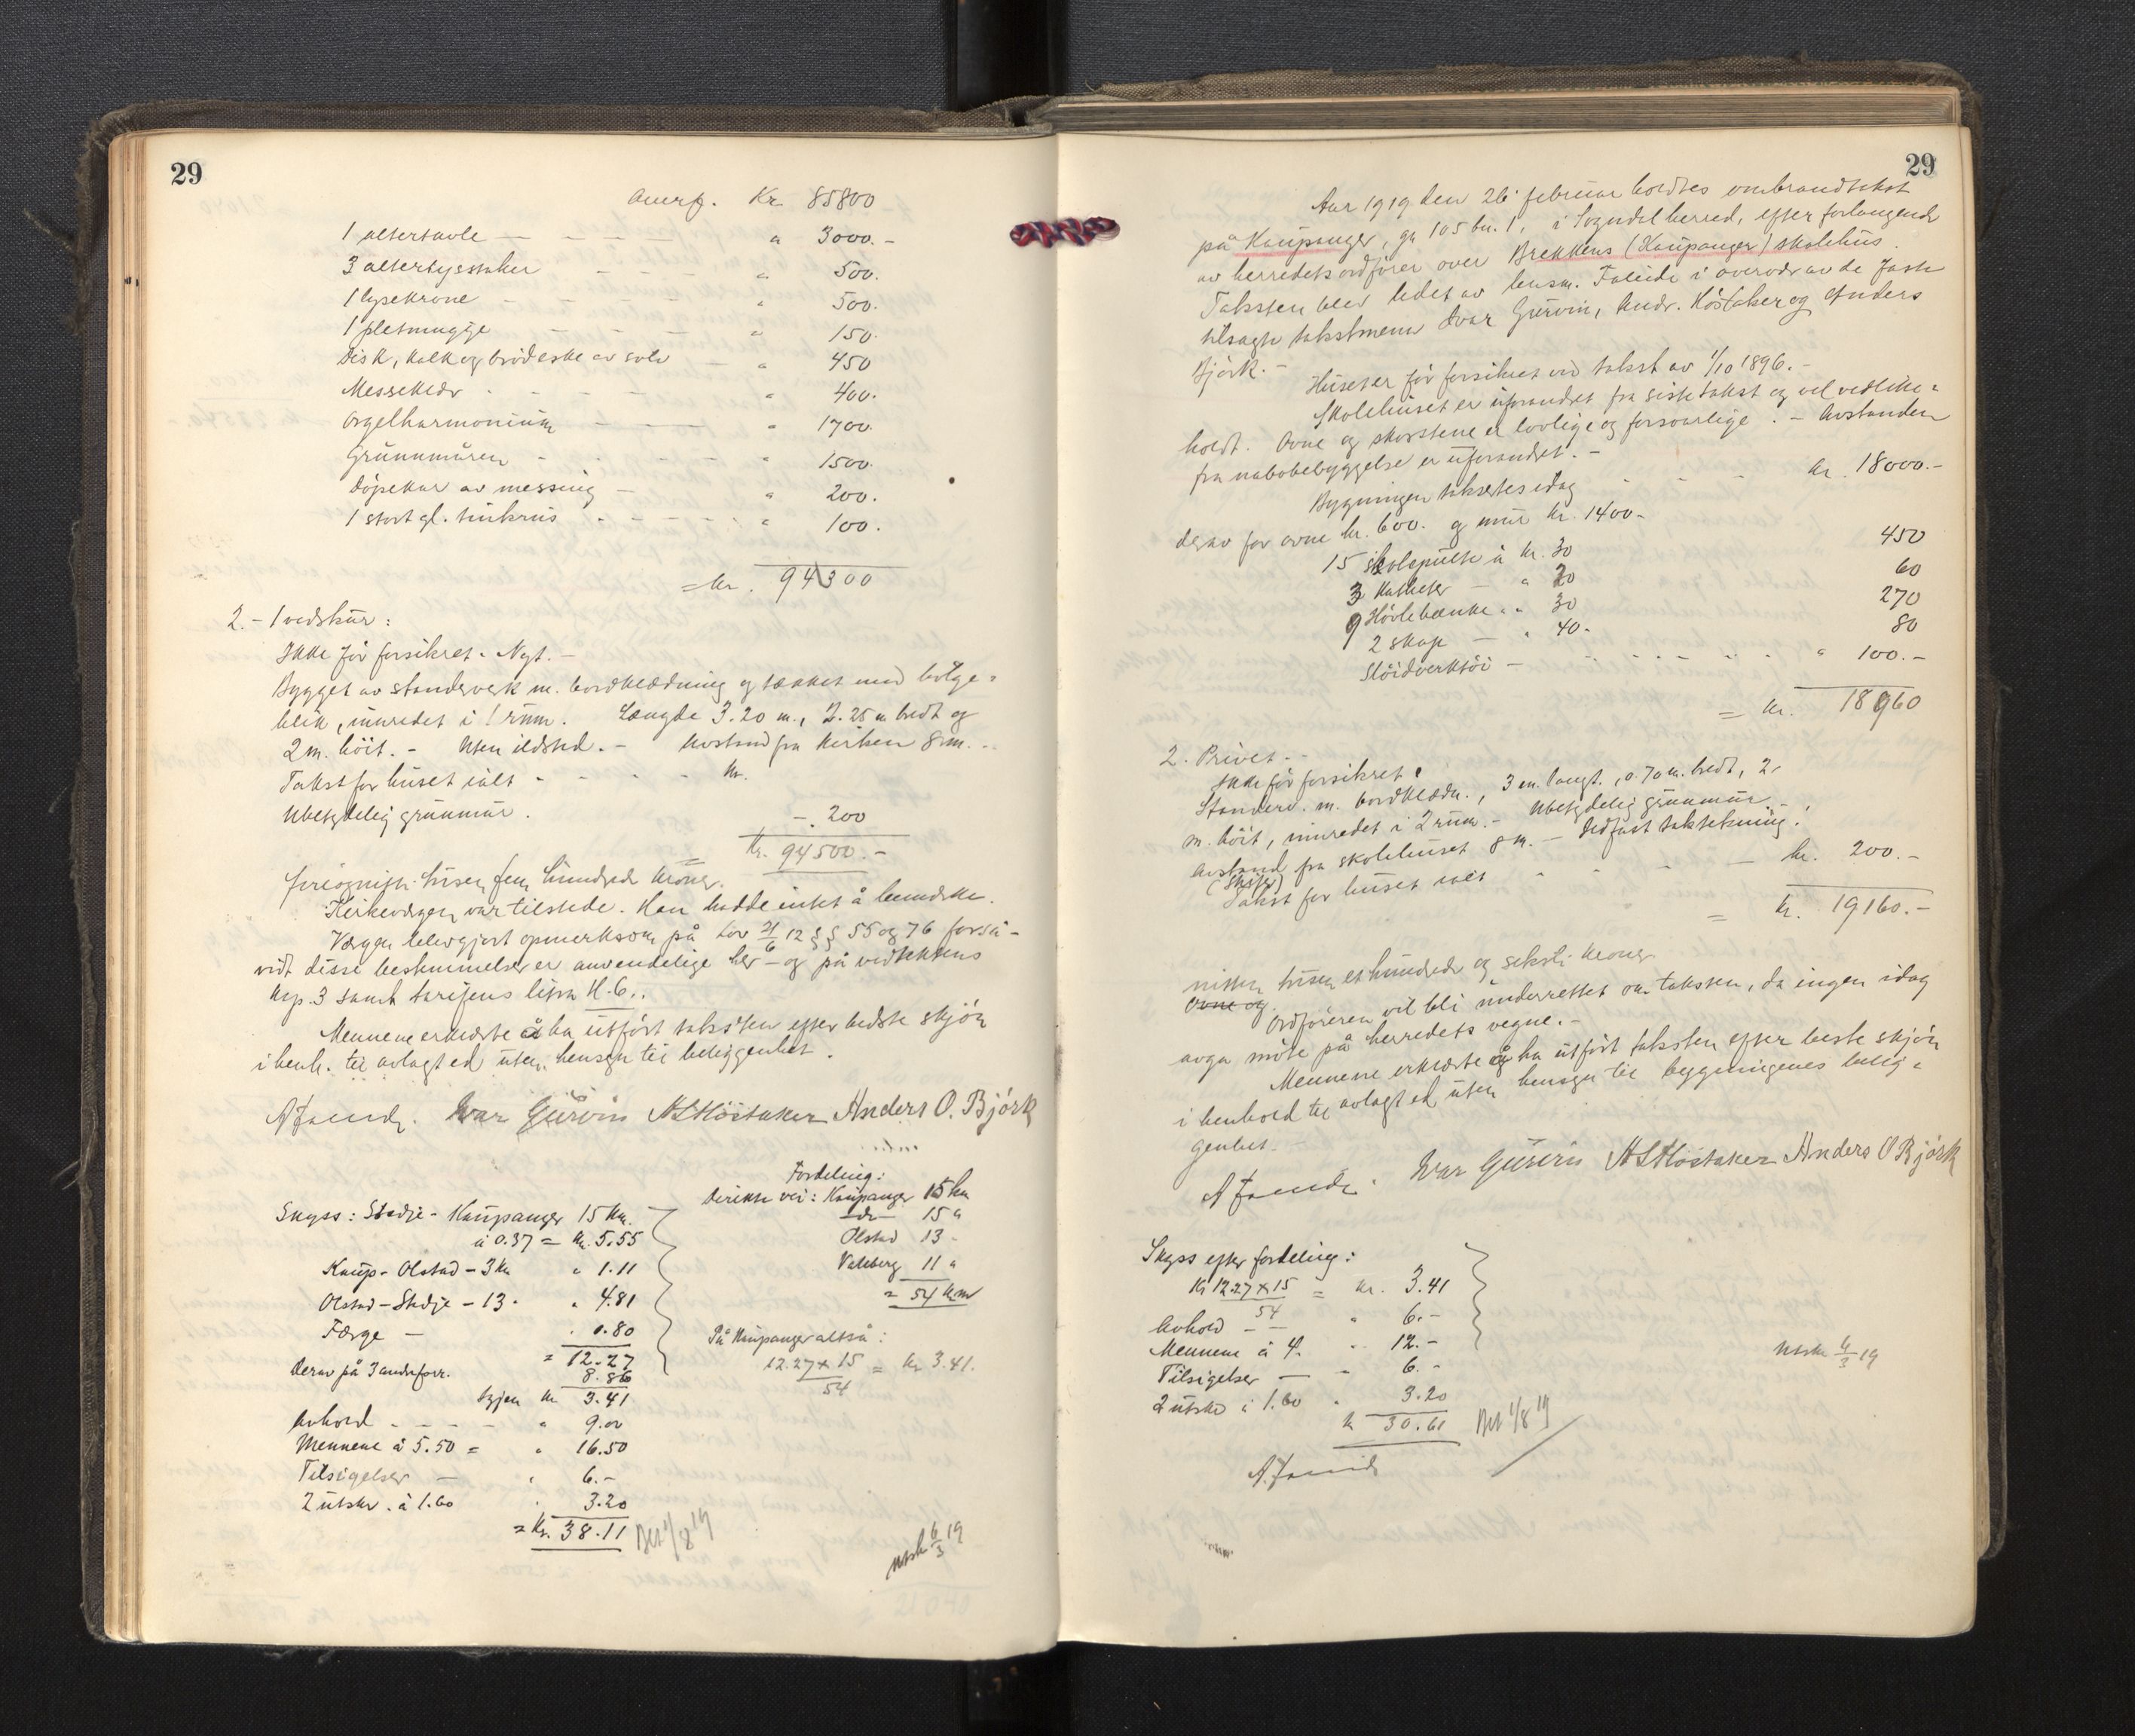 29
Overf. Kr. 85800
1 altertavle — - - - " 3000.-
3 alterlysstaker - - - " 500.
1 lysekrone - - - - " 500.
1 pletmugge - - - - " 150.
Disk, kalk og brödeske av sölv - " 450
Messeklær - - - - " 400.
Orgelharmonium - - - " 1700.
Grunnmuren - - - - " 1500.
Döpekar av messing - " 200.
1 stort gl. tinkrus - - - " 100.
= kr. 94300
2. - 1 vedskur:
Ikke för forsikret. Nyt. -
Bygget av standerverk m. bordklædning og tækket med bölge=
blik, innredet i 1 rum. Længde 3.20 m., 2.25 m bredt og
2 m. höit. - Uten ildsted. - Avstand fra kirken 8 m. -
Takst for huset ialt - - - - kr.
Ubetydelig grunmur. -. 200
Kr. 94500.-
firiognitti tusen fem hundrede kroner.
Kirkevergen var tilstede. Han hadde intet å bemerke.
Vergen blev gjort opmerksom på lov 21/6 12 §§ 55 og 76 forså-
vidt disse bestemmelser er anvendelige her - og på vedtektens
kap. 3 samt tarifens litra H.6..
Mennene erklærte å ha utfört taksten efter bedste skjön
i henh. til avlagt ed uten hensyn til beliggenhet.
A Faleide. Ivar Gurvin A L Höstaker Anders O. Björk
Fordeling:
Direkte vei: Kaupanger 15 km
-do- 15 "
Olstad 13 -
Valeberg 11 "
= 54 km
På Kaupanger altså:
12.27 x 15 / 54 = Kr 3.41.
Skyss: Stedje - Kaupanger 15 km.
à 0.37 = kr. 5.55
Kaup - Olstad - 3 km " 1.11
Olstad - Stedje - 13 - " 4.81
Færge — . 0.80
= 12.27
Derav på 3 andre forr. 8.86
Igjen kr 3.41
Avhold - - - - " 9.00
Mennene à 5.50 = " 16.50
Tilsigelser — " 6.-
2 utskr. à 1.60 . 3.20
= Kr. 38.11 Bet 1/8 19
Utsk 6/3 19
29
Aar 1919 den 26 februar holdtes ombrandtakst
på Kaupanger, gn 105 bn. 1, i Sogndal herred, efter forlangende
av herredets ordförer over Brekkens (Kaupanger) skolehus.
Taksten blev ledet av lensm. Faleide i overvær av de faste
tilsagte takstmenn Ivar Gurvin, Andr. Höstaker og Anders
Björk. -
Huset er för forsikret ved takst av 1/10 1896. -
Skolehuset er uforandret fra siste takst og vel vedlike=
holdt. Ovne og skorstene er lovlige og forsvarlige. - Avstanden
fra nabobebyggelse er uforandret. -
Bygningen takseres idag - - - kr. 18000.-
derav for ovne kr. 600. og mur kr. 1400-
15 skolepulte à kr. 30 450
3 Katheter — " 20 60
9 Hövlebænke " " 30 270
2 skap — " 40- 80
Slöidverktöi - - - - - " 100.-
= kr. 18960
2. Privet. -
Ikke för forsikret.
Standerv. m. bordklædn., 3 m. langt., 0.70 m. bredt, 2
m. höit, innredet i 2 rum. - Ubetydelig grunmur. -
Avstand fra skolehuset 8 m. - Ildfast taktekning.
(Skifer)
Takst for huset ialt - - - kr. 200.-
= kr. 19160.-
nitten tusen ethundrede og seksti kroner
Ovne og
Ordföreren vil bli underrettet om taksten, da ingen idag
avga möte på herredets vegne. -
Mennene erklærte å ha utfört taksten efter beste skjön
i henhold til avlagt ed uten hensyn til bygningenes belig=
genhet. -
A Faleide. Ivar Gurvin A L Höstaker Anders O Björk
Skyss efter fordeling:
Kr 12.27 x 15 / 54 = kr. 3.41
Avhold - — " 6.-
Mennene à 4. " 12.-
Tilsigelser — " 6.-
2 utskr à 1.60 " 3.20
kr 30.61 Bet 1/8 19
A. Faleide
Utskr 6/3 19